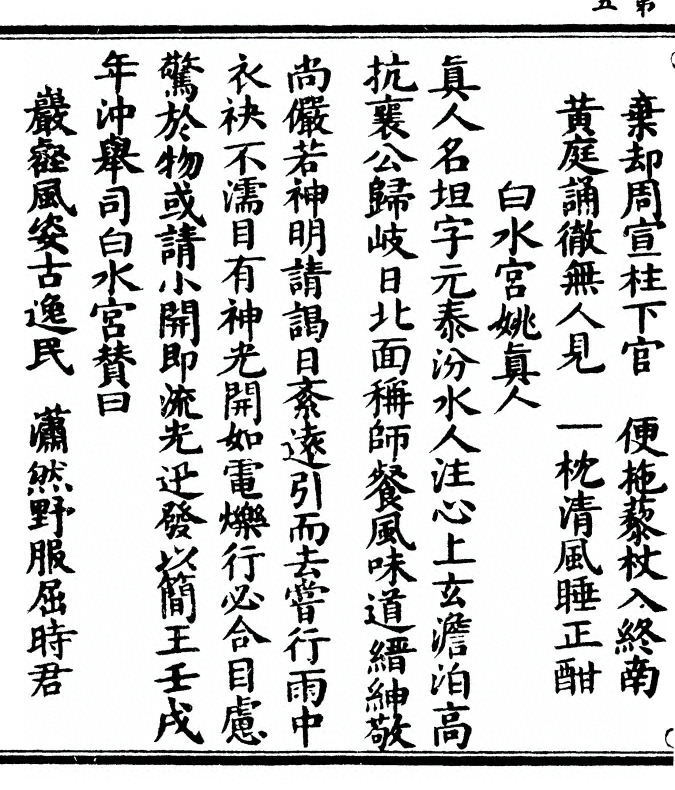 第五
棄却周宣柱下官　便拖藜杖入終南
黃庭誦徹無人見　一枕清風睡正酣
白水宮姚眞人
眞人名坦字元泰汾水人注心上玄澹泊高
抗襄公歸岐日北面稱師餐風味道縉紳敬
尚儼若神明請謁日紊遠引而去嘗行雨中
衣袂不濡目有神光開如電爍行必合目慮
驚於物或請小開即流光迅發以簡王壬戌
年沖舉司白水宮贊曰
巖壑風姿古逸民　瀟然野服屈時君